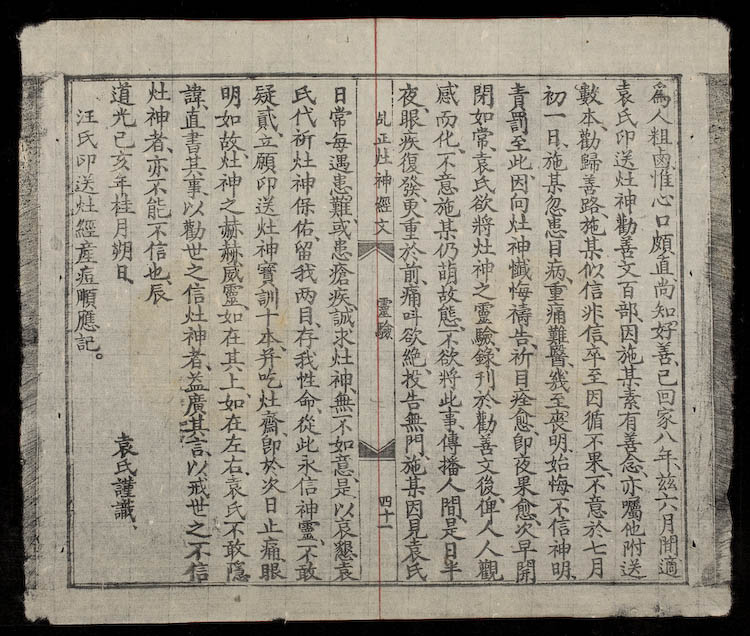 為人粗鹵、惟心口頗直、尚知好善、已回家八年、玆六月間、適
袁氏印送灶神勸善文百部、因施某素有善念、亦囑他附送
數本、勸歸善路、施某似信非信、卒至因循不果、不意於七月
初一日、施某忽患目病、重痛難醫、幾至喪明、始悔不信神明、
責罰至此、因向灶神懺悔禱告、祈目痊愈、即夜果愈、次早開
閉如常、袁氏欲將灶神之靈驗錄刊於勸善文後、俾人人觀
感而化、不意施某仍萌故態、不欲將此事、傳播人間、是日半
夜、眼疾復發、更重於前、痛呌欲絶、投告無門、施某因見袁氏
乩正灶神經文
靈驗
四十一
日常每遇患難、或患瘡疾、誠求灶神、無不如意、是以哀懇袁
氏代祈灶神保佑、留我兩目、存我性命、從此永信神靈、不敢
疑貳、立願印送灶神寶訓十本、并吃灶齋、即於次日止痛、眼
明如故、灶神之赫赫威靈、如在其上、如在左右、袁氏不敢隱
諱、直書其事、以勸世之信灶神者、益廣其言、以戒世之不信
灶神者、亦不能不信也、辰
道光己亥年桂月朔日、
袁氏謹識、
汪氏印送灶經產痘順應記。